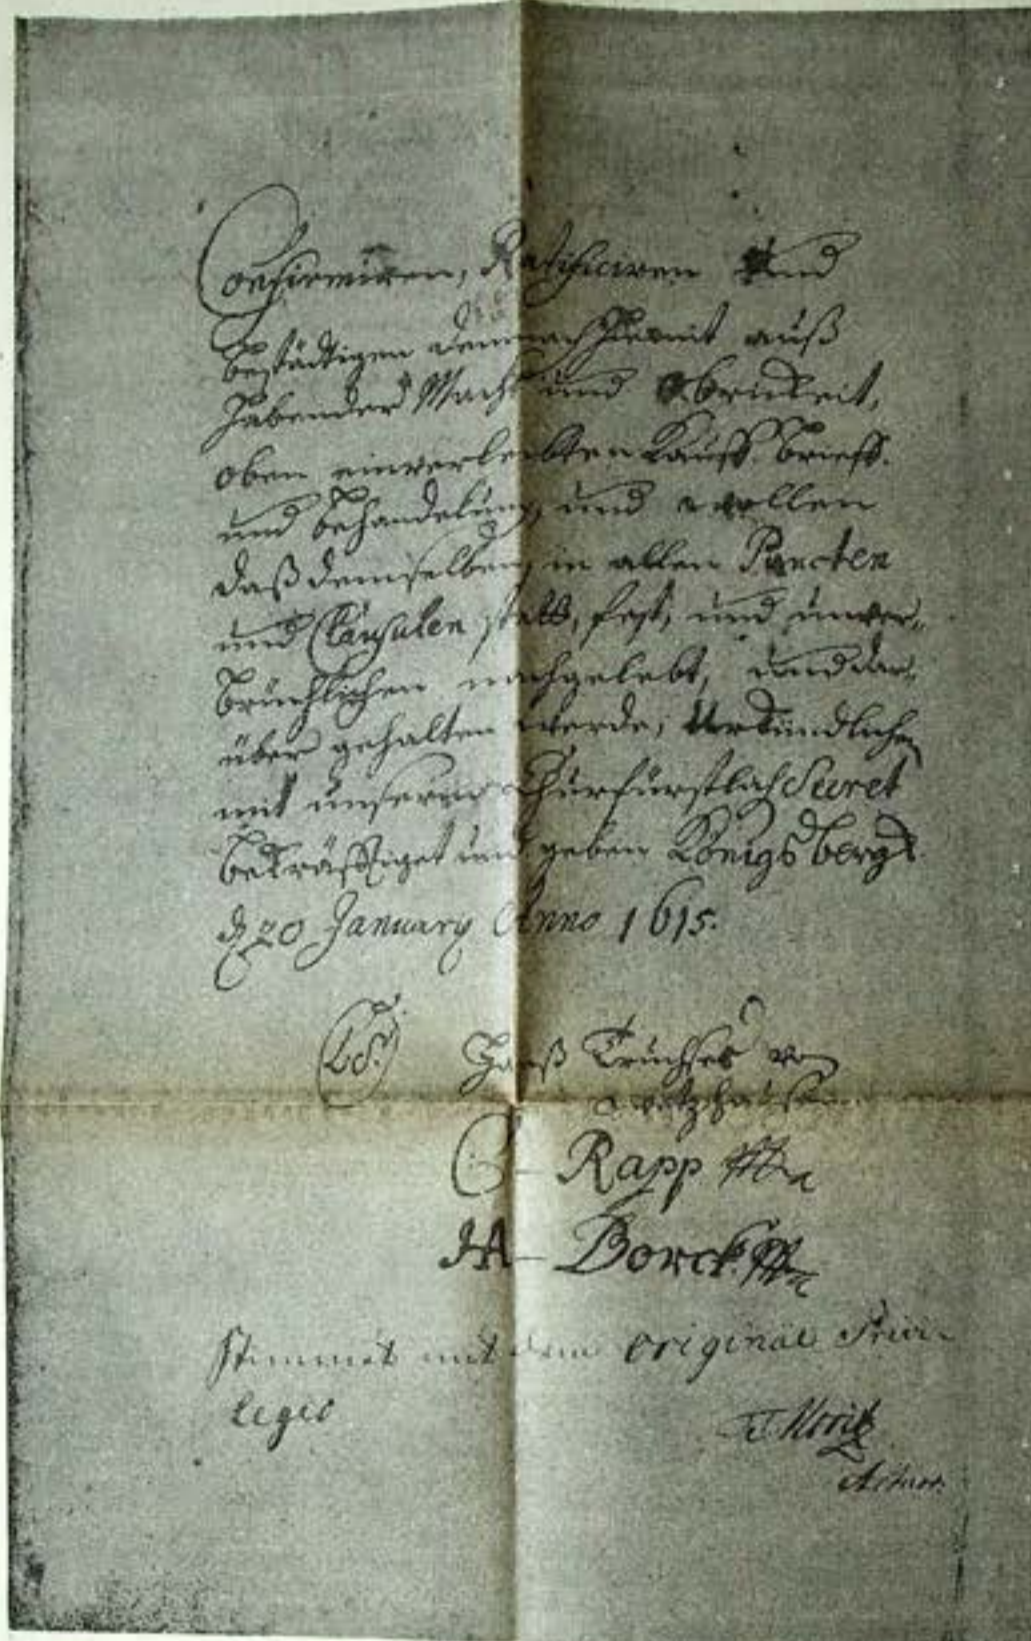 Confirmiren, Ratificiren Und
bestädtigen demnach hiermit auß
habender Macht und Obrikeit,
oben einverleibten Kauff brieff.
und behandelung, und wollen
daß demselben, in allen Puncten
und Clausulen stets, fest, und unver„
brüchlichen nachgelebt, und dar„
über gehalten werde; Urkundlichen
mit unserm Churfürstlich Secret
bekräfftiget und geben Königsberg
d. 20 January Anno 1615.
(LS.) Hanß Truchses von
Wetzhausen
C – Rapp
Borck
Stimmet mit dem original Privi-
legio
Moritz
Actuar.